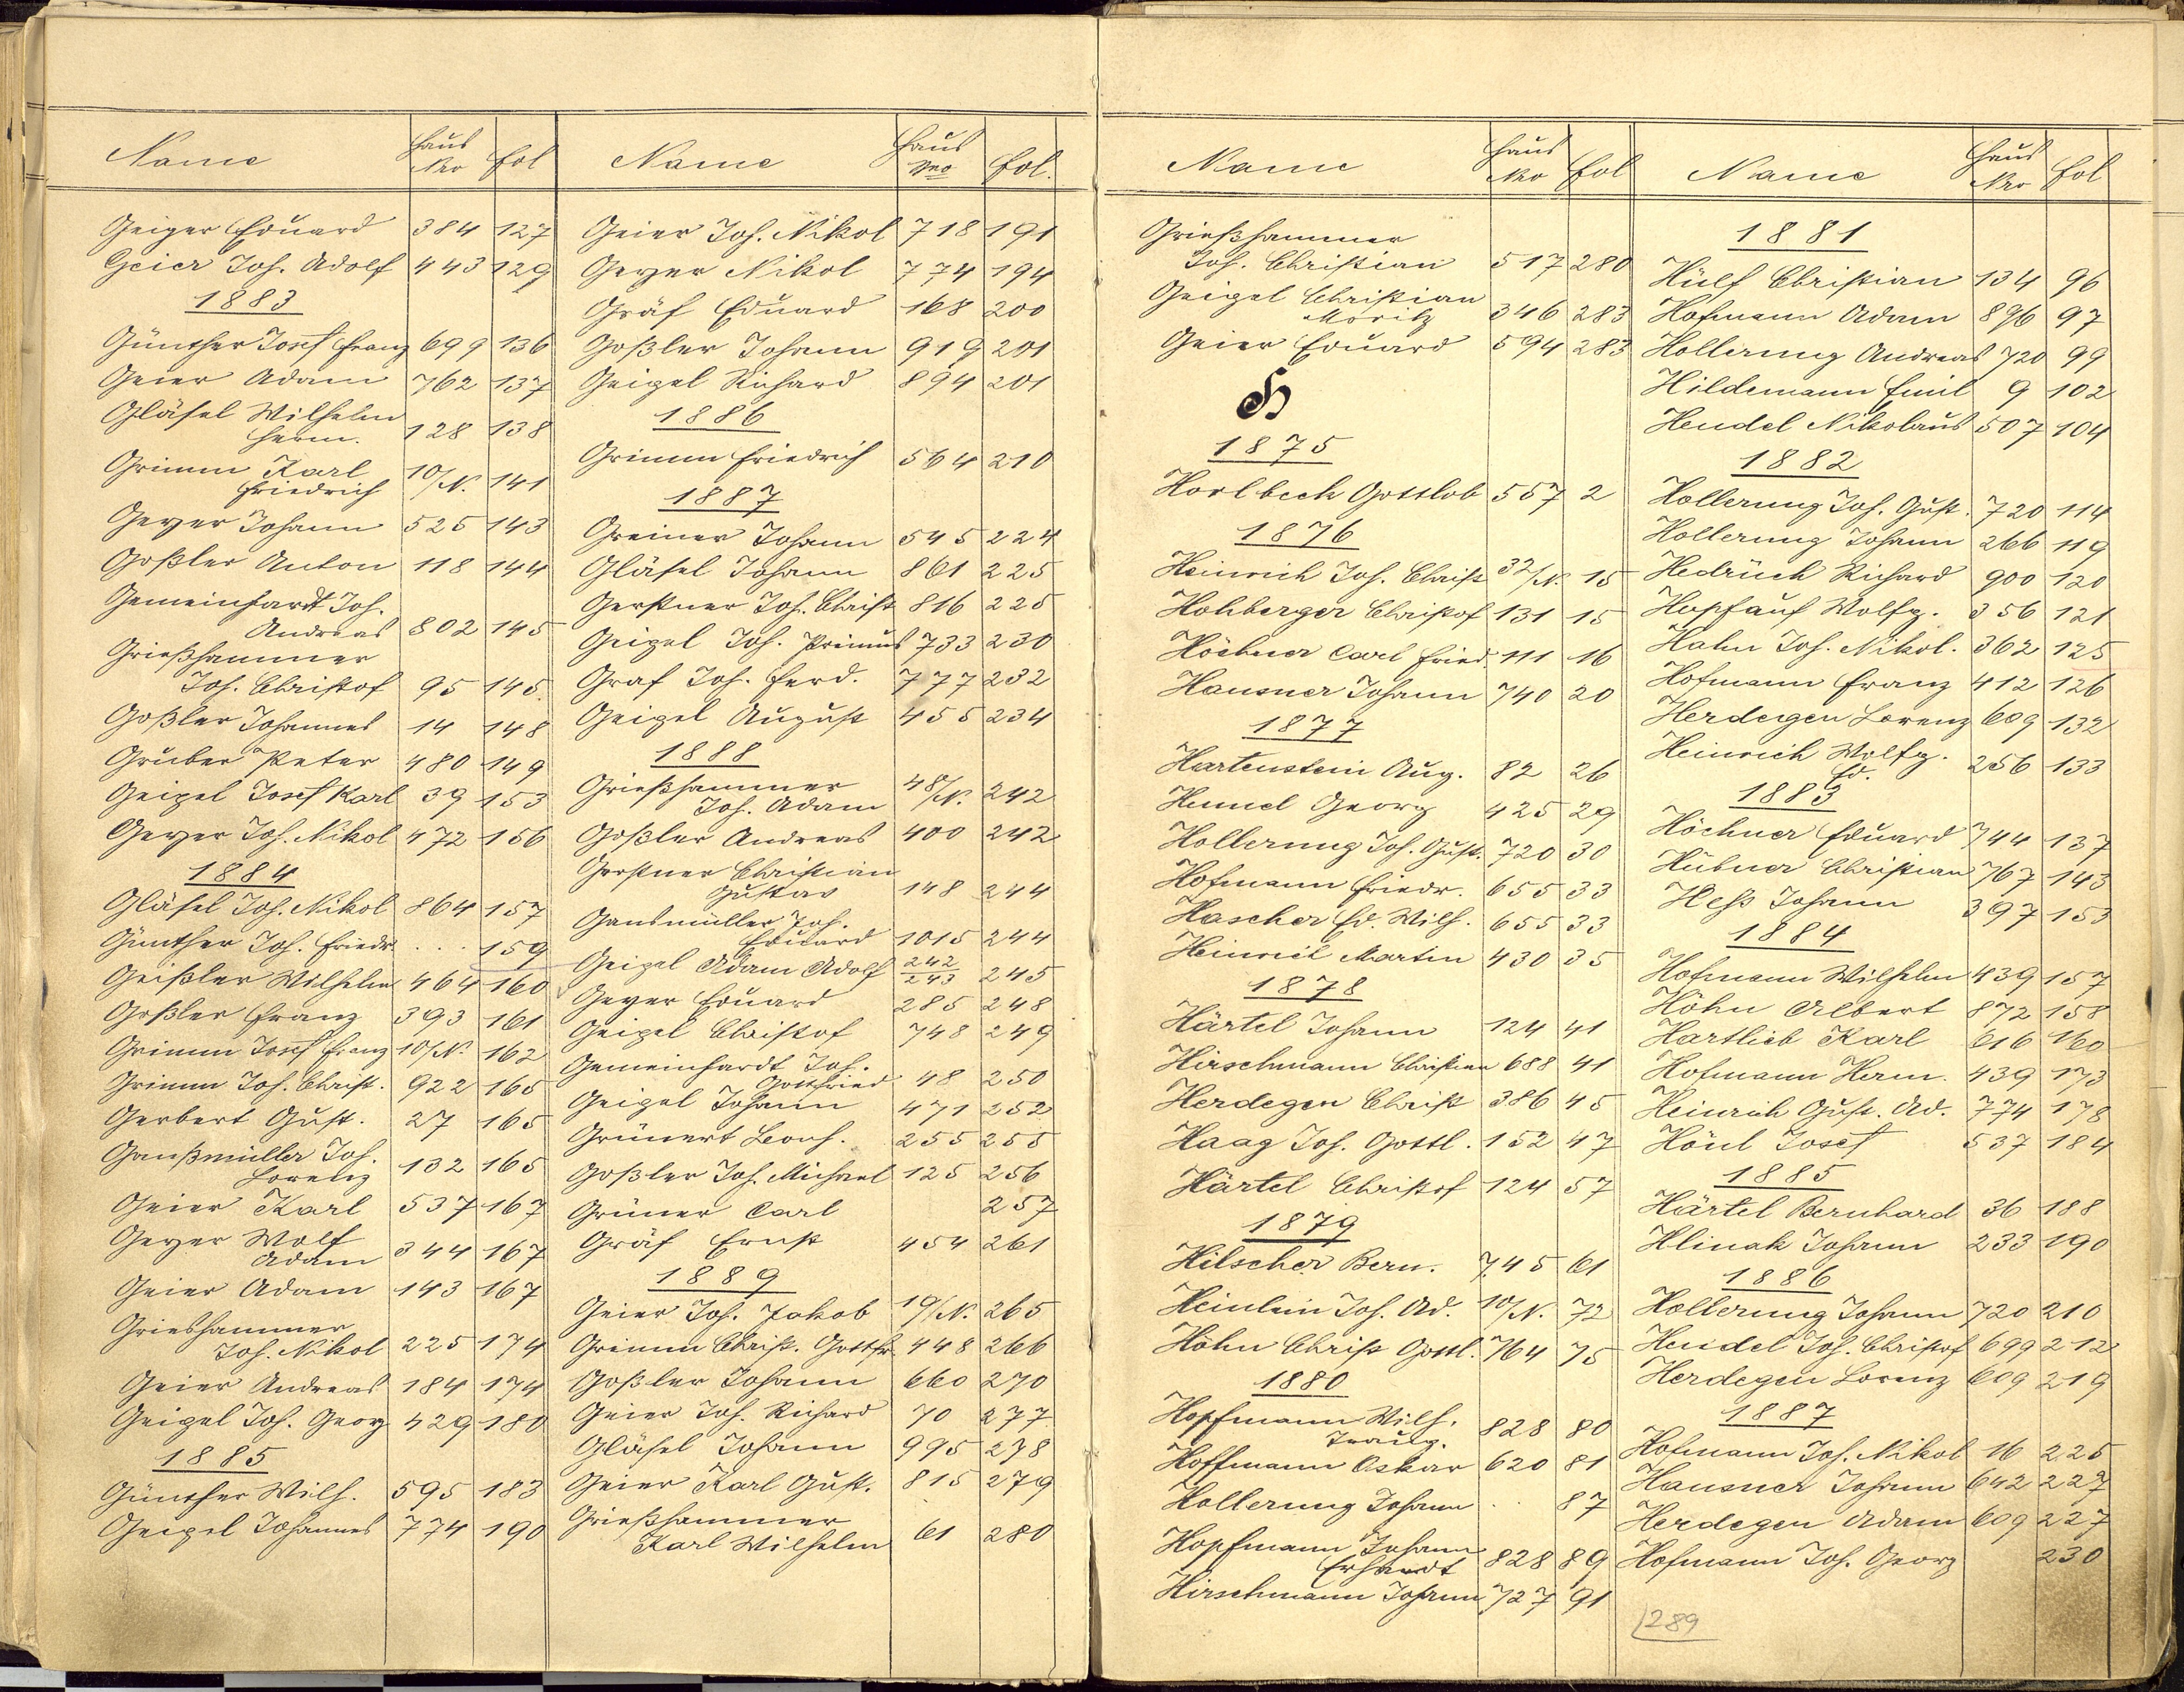 Name Haus Nro fol
Geiger Eduard 384 127
Geier Joh. Adolf 443 129
1883
Günther Josef Franz 699 136
Geier Adam 762 137
Gläsel Wilhelm
Herm. 128 138
Grimm Karl
Friedrich 10/N. 141
Geyer Johann 525 143
Goßler Anton 118 144
Gemeinhardt Joh.
Andreas 802 145
Grießhammer
Joh. Christof 95 145
Goßler Johannes 14 148
Gruber Peter 480 149
Geipel Josef Karl 39 153
Geyer Joh. Nikol 472 156
1884
Gläsel Joh. Nikol 864 157
Günther Joh. Friedr. . . . 159
Geißler Wilhelm 464 160
Goßler Franz 393 161
Grimm Josef Franz 10/N. 162
Grimm Joh. Christ. 922 165
Gerbert Gust. 27 165
Ganßmüller Joh.
Lorenz 132 165
Geier Karl 537 167
Geyer Wolf
Adam 344 167
Geier Adam 143 167
Grieshammer
Joh. Nikol 225 174
Geier Andreas 184 174
Geipel Joh. Georg 429 180
1885
Günther Wilh. 595 183
Geipel Johannes 774 190
Name Haus Nro fol.
Geier Joh. Nikol 718 191
Geyer Nikol 774 194
Gräf Eduard 168 200
Goßler Johann 919 201
Geipel Richard 894 201
1886
Grimm Friedrich 564 210
1887
Greiner Johann 545 224
Gläsel Johann 861 225
Gerstner Joh. Christ 816 225
Geipel Joh. Primus 733 230
Graf Joh. Ferd. 777 232
Geipel August 455 234
1888
Grießhammer
Joh. Adam 48/N. 242
Goßler Andreas 400 242
Gerstner Christian
Gustav 148 244
Gansmüller Joh.
Eduard 1015 244
Geipel Adam Adolf 242/243 245
Geyer Eduard 285 248
Geipel Christof 748 249
Gemeinhardt Joh.
Gottfried 48 250
Geipel Johann 471 252
Grünert Leonh. 255 255
Goßler Joh. Michael 125 256
Grüner Carl 257
Gräf Ernst 454 261
1889
Geier Joh. Jakob 19/N. 265
Grimm Christ. Gottfr. 448 266
Goßler Johann 660 270
Geier Joh. Richard 70 277
Gläsel Johann 995 278
Geier Karl Gust. 815 279
Grießhammer
Karl Wilhelm 61 280
Name Haus Nro fol
Grießhammer
Joh. Christian 517 280
Geipel Christian
Moritz 346 283
Geier Eduard 594 283
H
1875
Horlbeck Gottlob 557 2
1876
Heinrich Joh. Christ 32/N. 15
Hohberger Christof 131 15
Höchner Carl Fried. 111 16
Hausner Johann 740 20
1877
Hartenstein Aug. 82 26
Hennel Georg 425 29
Hollerung Joh. Gust. 720 30
Hofmann Friedr. 655 33
Hascher Fd. Wilh. 655 33
Heinrich Martin 430 35
1878
Härtel Johann 124 41
Hirschmann Christian 688 41
Herdegen Christ 386 45
Haag Joh. Gottl. 152 47
Härtel Christof 124 57
1879
Hilscher Bern. 745 61
Heinlein Joh. Ad. 10/N. 72
Höhn Christ Gottl. 764 75
1880
Hopfmann Wilh.
Traug. 828 80
Hoffmann Oskar 620 81
Hollerung Johann . . 87
Hopfmann Johann
Erhardt 828 89
Hirschmann Johann 727 91
Name Haus Nro fol
1881
Hülf Christian 134 96
Hofmann Adam 896 97
Hollerung Andreas 720 99
Hildemann Emil 9 102
Hendel Nikolaus 507 104
1882
Hollerung Joh. Gust. 720 114
Hollerung Johann 266 119
Hedrich Richard 900 120
Hopfauf Wolfg. 356 121
Hahn Joh. Nikol. 362 125
Hofmann Franz 412 126
Herdegen Lorenz 609 132
Heinrich Wolfg.
Ed. 256 133
1883
Höchner Eduard 744 137
Hübner Christian 767 143
Heß Johann 397 153
1884
Hofmann Wilhelm 439 157
Höhn Albert 872 158
Hartlieb Karl 616 160
Hofmann Herm. 439 173
Heinrich Gust. Ad. 774 178
Hönl Josef 537 184
1885
Härtel Bernhard 36 188
Hlinak Johann 233 190
1886
Hollerung Johann 720 210
Hendel Joh. Christof 699 212
Herdegen Lorenz 609 219
1887
Hofmann Joh. Nikol 16 225
Hausner Johann 642 227
Herdegen Adam 609 227
Hofmann Joh. Georg 230
289